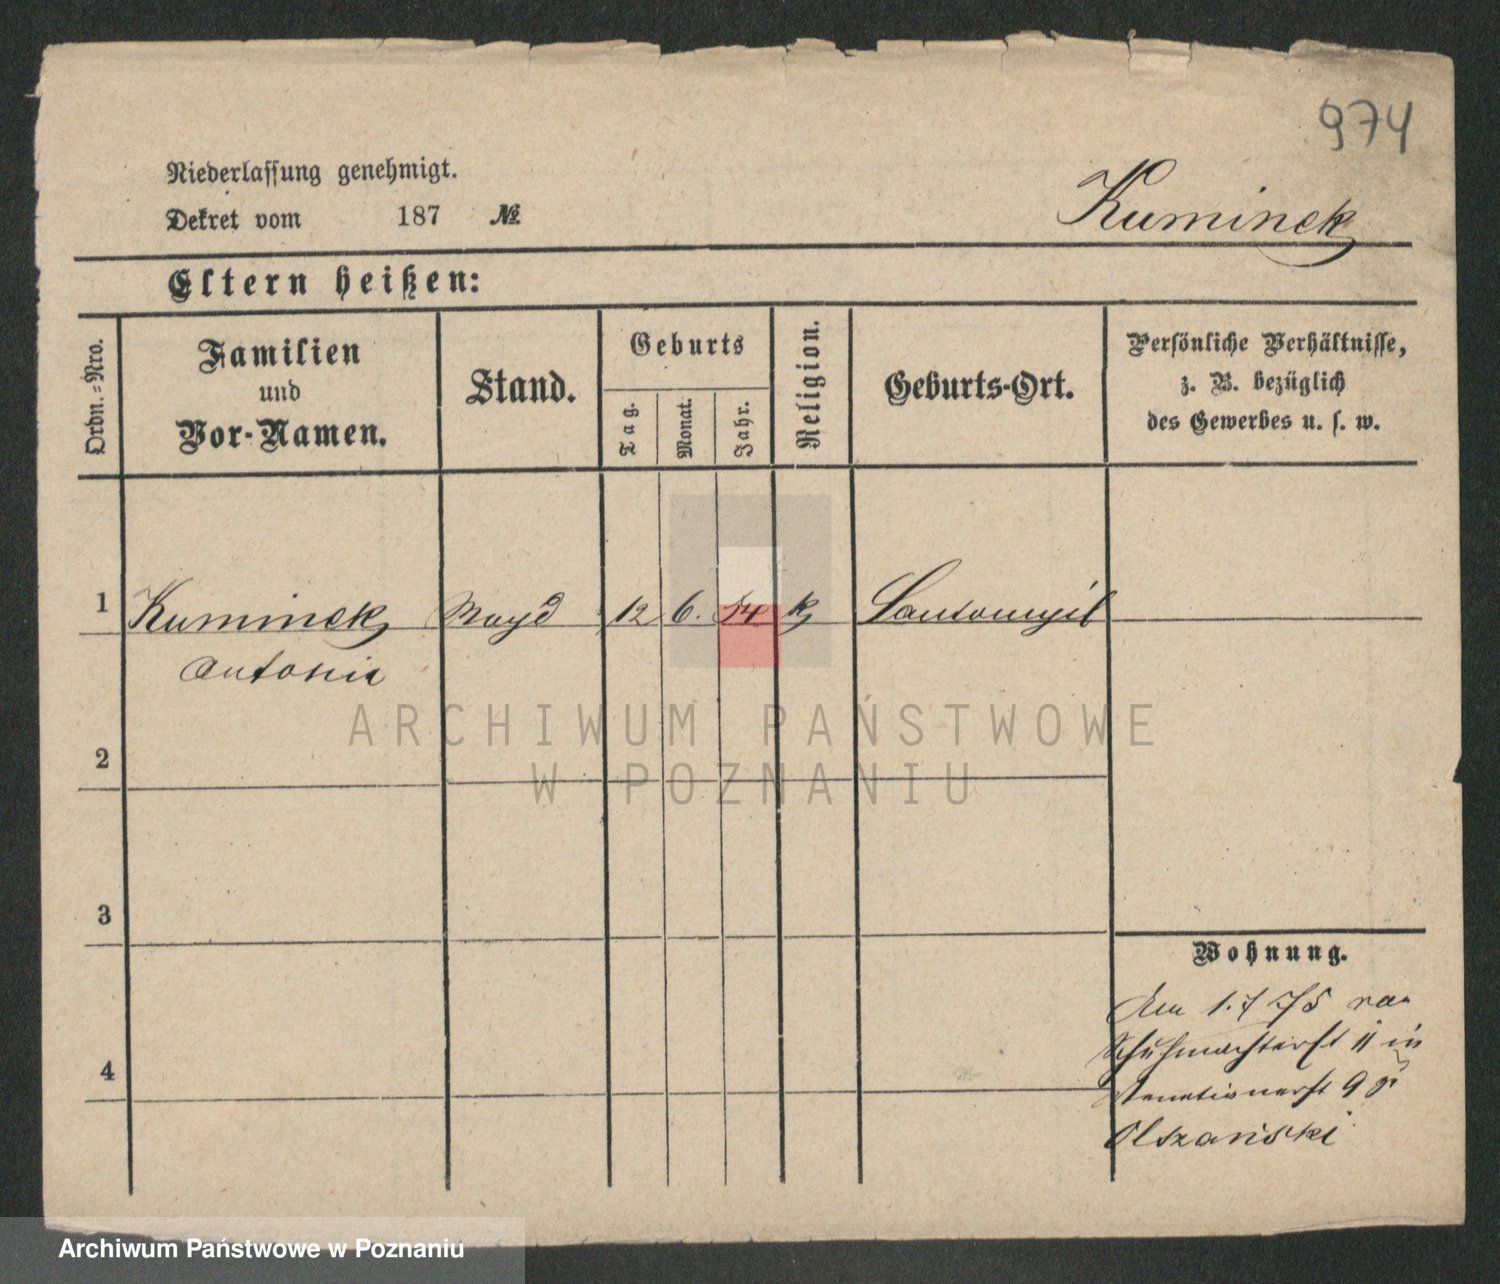 974
Niederlassung genehmigt.
Dekret vom 187 №
Kuminek
Eltern heißen:
Ordn.=Nro.
Familien
und
Vor-Namen.
Stand.
Geburts
Tag.
Monat.
Jahr.
Religion.
Geburts-Ort.
Persönliche Verhältnisse,
z. B. bezüglich
des Gewerbes u. s. w.
1 Kuminek Magd 12 6. 54 k Santomyśl
Antonie
2
3
4
Wohnung.
Am 1.7 75 von
Schuhmacherst 11 in
Venetianerst 9 z
Olszański
ARCHIWUM PAŃSTWOWE
W POZNANIU
Archiwum Państwowe w Poznaniu